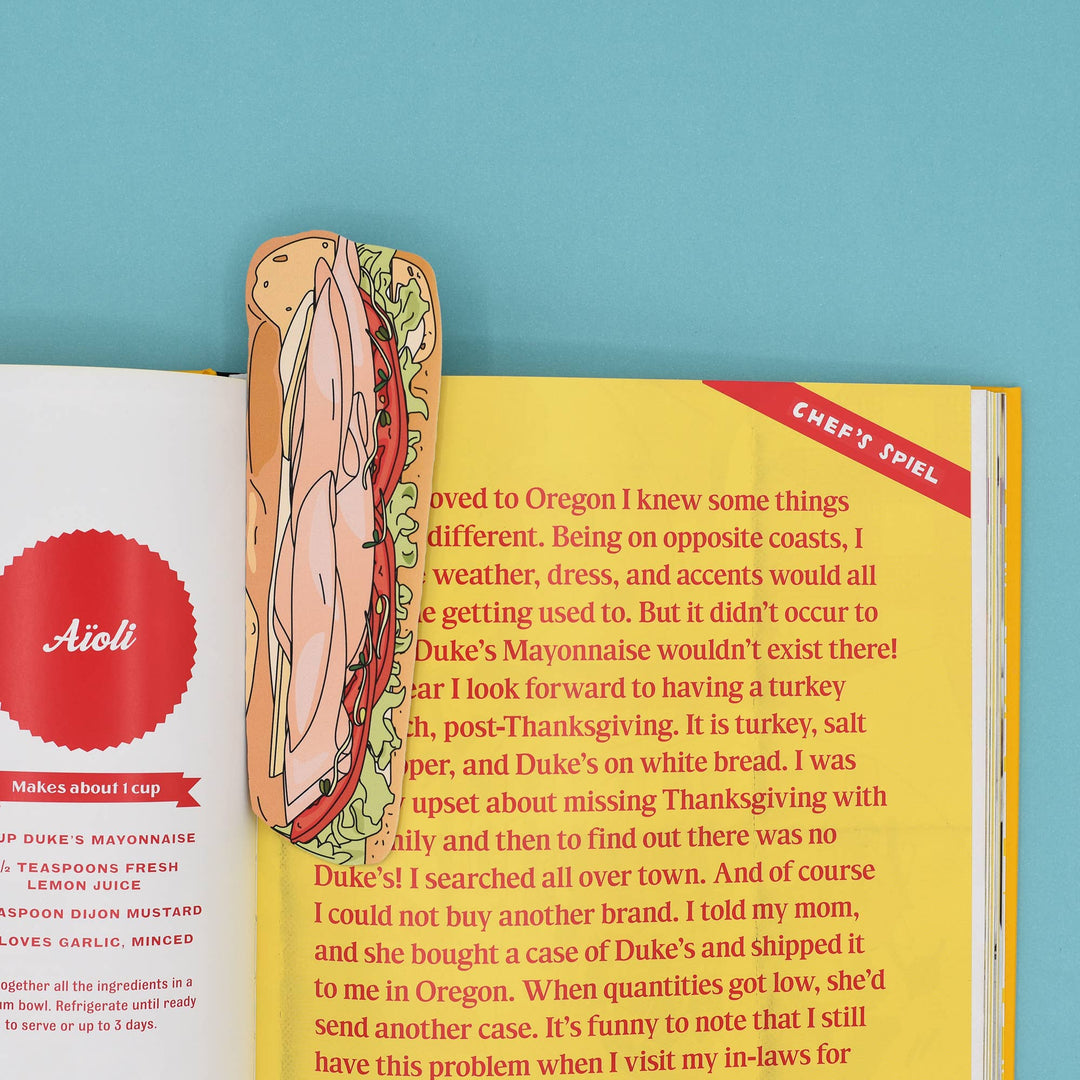 Aïoli
Makes about 1 cup
DUKE'S MAYONNAISE
TEASPOONS FRESH
LEMON JUICE
DIJON MUSTARD
GARLIC, MINCED
all the ingredients in a
bowl. Refrigerate until ready
to serve or up to 3 days.
CHEF'S SPIEL
to Oregon I knew some things
different. Being on opposite coasts, I
weather, dress, and accents would all
getting used to. But it didn't occur to
Duke's Mayonnaise wouldn't exist there!
I look forward to having a turkey
post-Thanksgiving. It is turkey, salt
and Duke's on white bread. I was
upset about missing Thanksgiving with
and then to find out there was no
Duke's! I searched all over town. And of course
I could not buy another brand. I told my mom,
and she bought a case of Duke's and shipped it
to me in Oregon. When quantities got low, she'd
send another case. It's funny to note that I still
have this problem when I visit my in-laws for